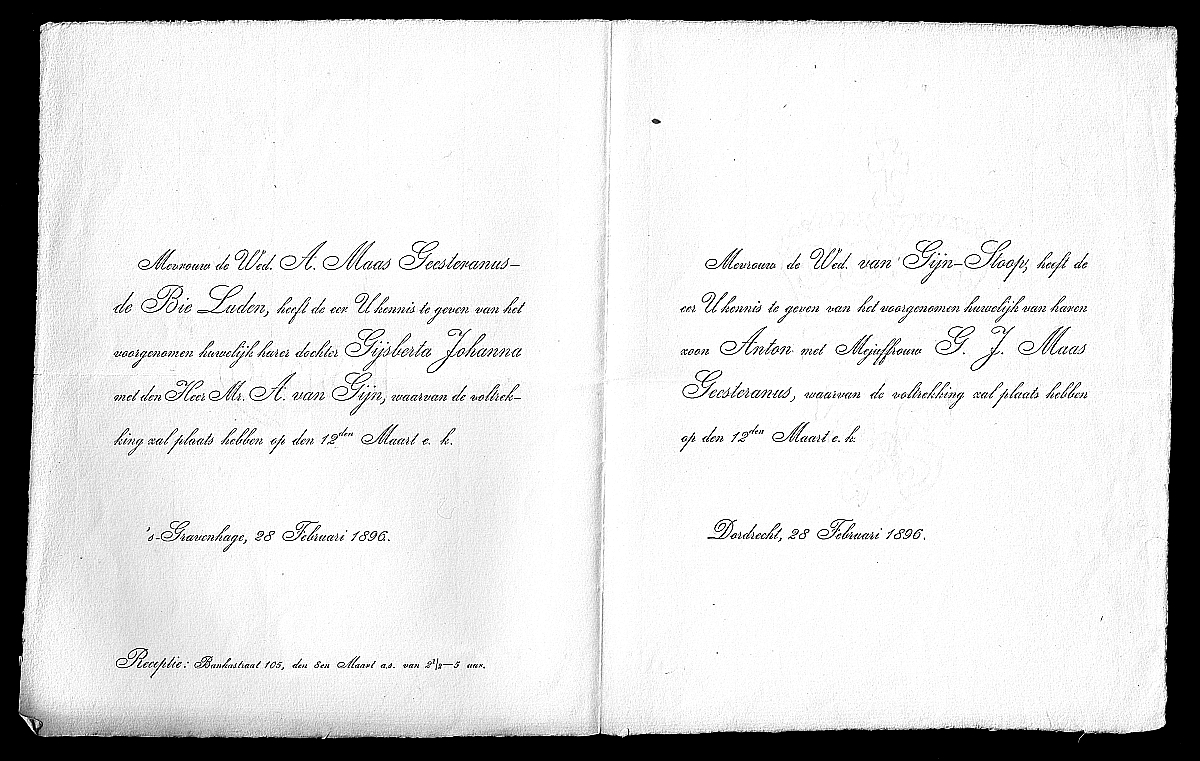 Mevrouw de Wed. A. Maas Geesteranus-
de Bie Luden, heeft de eer U kennis te geven van het
voorgenomen huwelijk harer dochter Gijsberta Johanna
met den Heer Mr. A. van Gijn, waarvan de voltrek-
king zal plaats hebben op den 12den Maart e. k.
's-Gravenhage, 28 Februari 1896.
Receptie: Bankastraat 105, den 8en Maart a.s. van 2½—5 uur.
Mevrouw de Wed. van Gijn-Stoop, heeft de
eer U kennis te geven van het voorgenomen huwelijk van haren
zoon Anton met Mejuffrouw G. J. Maas
Geesteranus, waarvan de voltrekking zal plaats hebben
op den 12den Maart e. k.
Dordrecht, 28 Februari 1896.